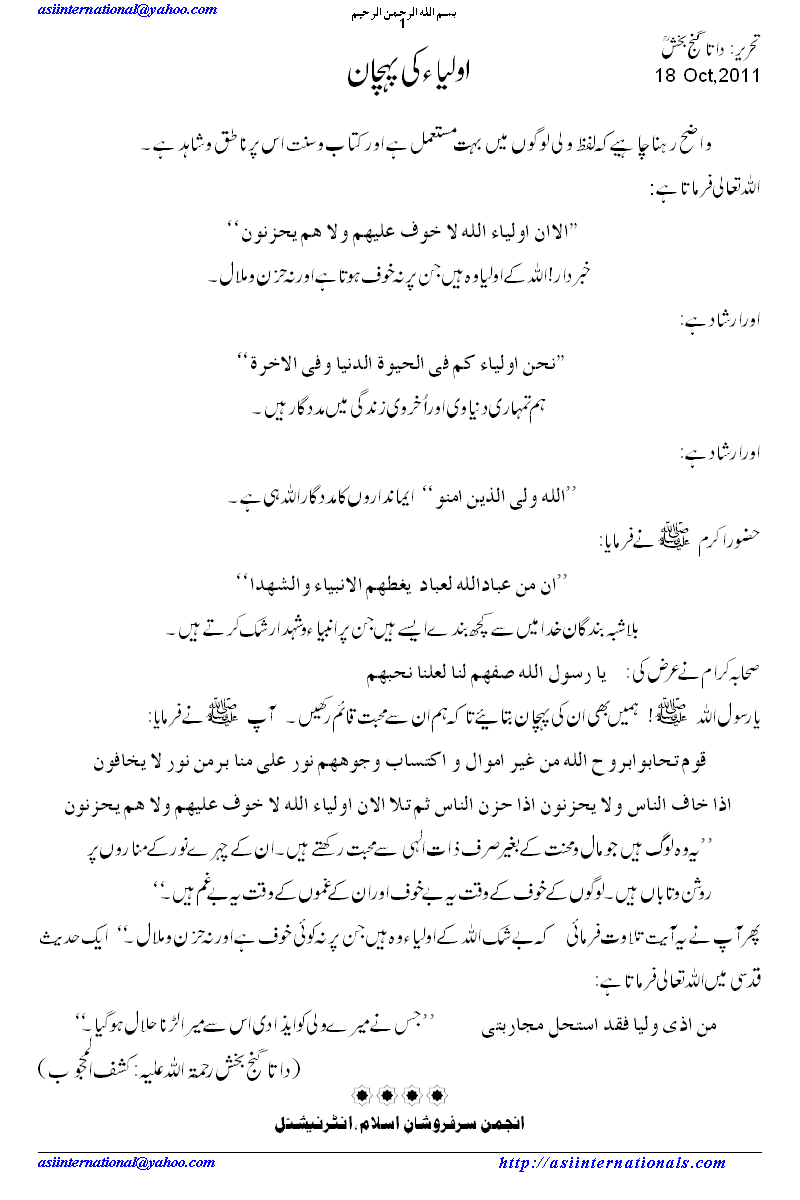 asiinternational@yahoo.com
بسم الله الرحمن الرحیم
1
تحریر: داتا گنج بخشؒ
18 Oct,2011
اولیاء کی پہچان
واضح رہنا چاہیے کہ لفظ ولی لوگوں میں بہت مستعمل ہے اور کتاب وسنت اس پر ناطق وشاہد ہے ۔
اللہ تعالی فرماتا ہے:
”الاان اولیاء الله لا خوف علیهم ولا هم یحزنون‘‘
خبردار! اللہ کے اولیا وہ ہیں جن پر نہ خوف ہوتا ہے اور نہ حزن وملال ۔
اور ارشاد ہے:
”نحن اولیاء کم فی الحیوة الدنیا وفی الاخرة‘‘
ہم تمہاری دنیاوی اور اُخروی زندگی میں مددگار ہیں ۔
اور ارشاد ہے:
’’الله ولی الذین امنو‘‘ ایمانداروں کا مددگار اللہ ہی ہے ۔
حضور اکرم ﷺ نے فرمایا:
’’ان من عبادالله لعباد یغطهم الانبیاء والشهدا‘‘
بلاشبہ بندگان خدا میں سے کچھ بندے ایسے ہیں جن پر انبیاء وشہدا رشک کرتے ہیں ۔
صحابہ کرام نے عرض کی: یا رسول الله صفهم لنا لعلنا نحبهم
یارسول اللہ ﷺ! ہمیں بھی ان کی پہچان بتائیے تاکہ ہم ان سے محبت قائم رکھیں ۔ آپ ﷺ نے فرمایا:
قوم تحابوابروح الله من غیر اموال و اکتساب وجوههم نور علی منا برمن نور لا یخافون
اذا خاف الناس ولا یحزنون اذا حزن الناس ثم تلا الان اولیاء الله لا خوف علیهم ولا هم یحزنون
’’یہ وہ لوگ ہیں جو مال ومحنت کے بغیر صرف ذات الٰہی سے محبت رکھتے ہیں۔ ان کے چہرے نور کے مناروں پر
روشن وتاباں ہیں۔ لوگوں کے خوف کے وقت یہ بے خوف اور ان کے غموں کے وقت یہ بے غم ہیں۔‘‘
پھر آپ نے یہ آیت تلاوت فرمائی کہ بے شک اللہ کے اولیاء وہ ہیں جن پر نہ کوئی خوف ہے اور نہ حزن وملال ۔‘‘ ایک حدیث
قدسی میں اللہ تعالی فرماتا ہے:
من اذی ولیا فقد استحل مجاربتی ’’جس نے میرے ولی کو ایذا دی اس سے میرا لڑنا حلال ہوگیا۔‘‘
(داتا گنج بخش رحمۃ اللہ علیہ: کشف المحجوب)
انجمن سرفروشان اسلام، انٹرنیشنل
asiinternational@yahoo.com http://asiinternationals.com